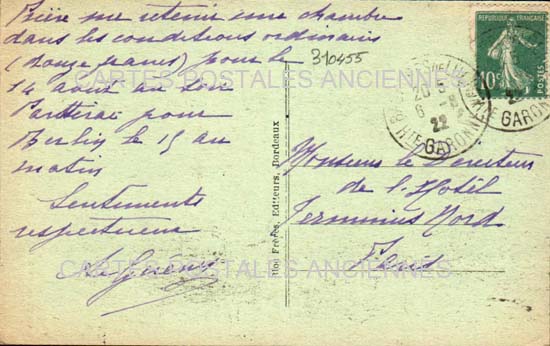 Prière me retenir une chambre
dans les conditions ordinaires
(douze francs) pour le
14 août au soir
Partirai pour
Berlin le 15 au
matin
Sentiments
respectueux
310455
CARTES POSTALES ANCIENNES
CARTES POSTALES ANCIENNES
Frères, Editeurs, Bordeaux
REPUBLIQUE FRANÇAISE
10c
POSTES
22
Hte GARONNE
GARONNE
Monsieur le Directeur
de l'Hôtel
Terminus Nord
Paris